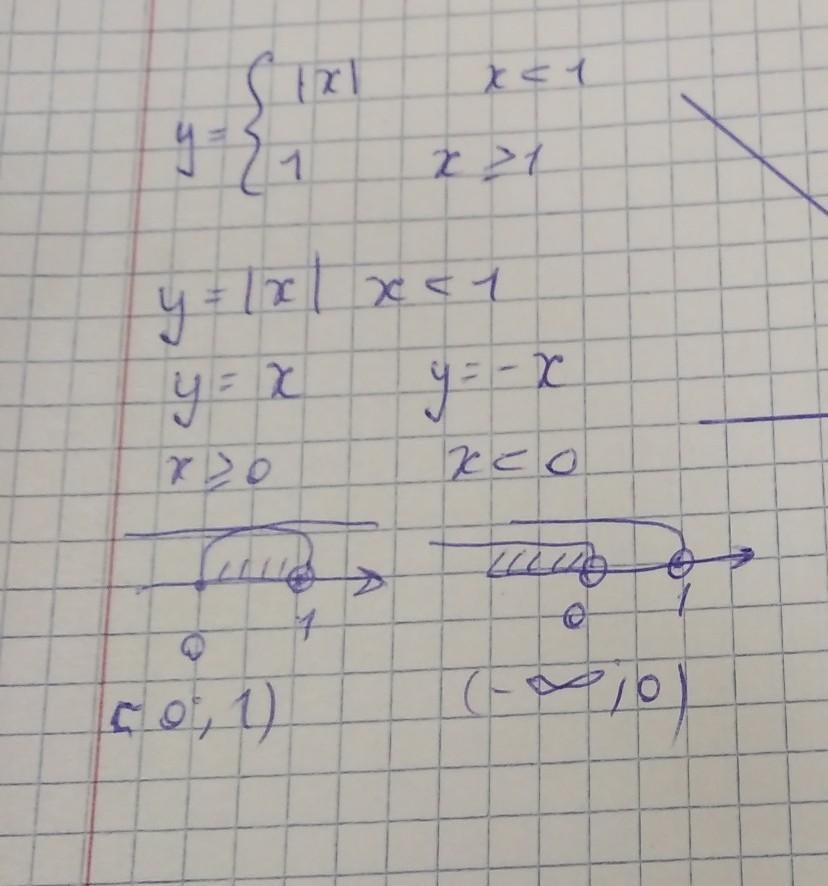 y = { |x| x < 1
1 x ≥ 1
y = |x| x < 1
y = x y = - x
x ≥ 0 x < 0
0 1 0 1
[0; 1) (-∞; 0)